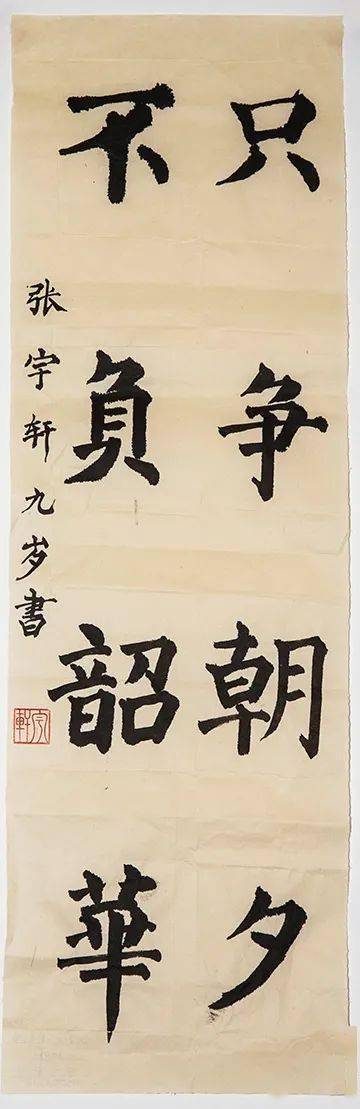 只争朝夕
不負韶華
张宇轩九岁書
宇軒